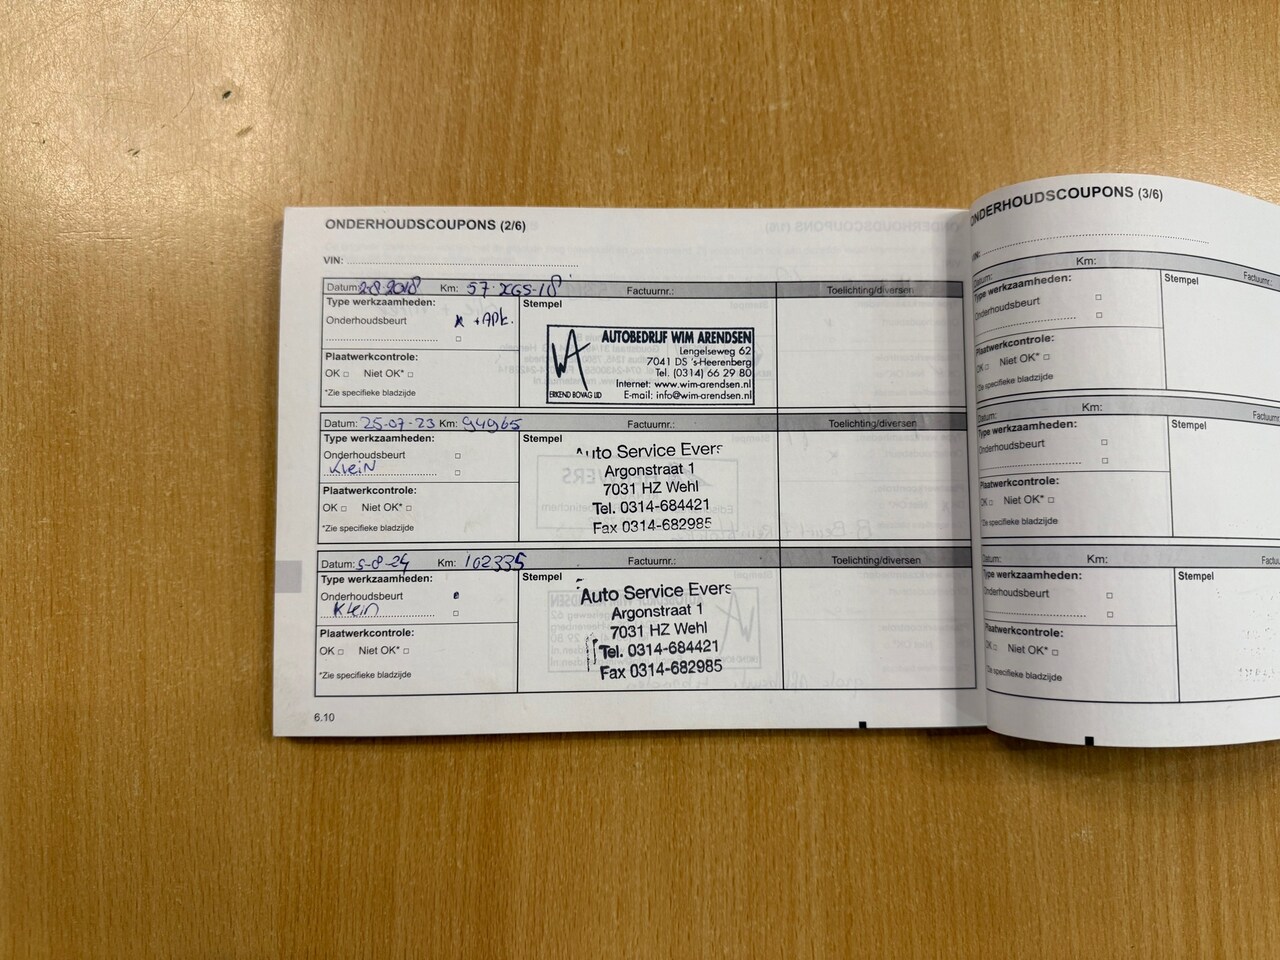 ONDERHOUDSCOUPONS (2/6)
VIN:
Datum: 2-8-2018 Km: Factuurnr.: Toelichting/diversen
Type werkzaamheden: Stempel
Onderhoudsbeurt x +APK.
Plaatwerkcontrole:
OK Niet OK*
*Zie specifieke bladzijde
AUTOBEDRIJF WIM ARENDSEN
Lengelseweg 62
7041 DS 's-Heerenberg
Tel. (0314) 66 29 80
Internet: www.wim-arendsen.nl
E-mail: info@wim-arendsen.nl
WA
ERKEND BOVAG LID
Datum: 25-07-23 Km: 94965 Factuurnr.: Toelichting/diversen
Type werkzaamheden: Stempel
Onderhoudsbeurt
KleiN
Plaatwerkcontrole:
OK Niet OK*
*Zie specifieke bladzijde
Auto Service Evers
Argonstraat 1
7031 HZ Wehl
Tel. 0314-684421
Fax 0314-682985
Datum: 5-8-24 Km: 102335 Factuurnr.: Toelichting/diversen
Type werkzaamheden: Stempel
Onderhoudsbeurt
Klein
Plaatwerkcontrole:
OK Niet OK*
*Zie specifieke bladzijde
Auto Service Evers
Argonstraat 1
7031 HZ Wehl
Tel. 0314-684421
Fax 0314-682985
6.10
ONDERHOUDSCOUPONS (3/6)
Datum: Km:
Type werkzaamheden: Stempel
Onderhoudsbeurt
Plaatwerkcontrole:
OK Niet OK*
*Zie specifieke bladzijde
Datum: Km:
Type werkzaamheden: Stempel
Onderhoudsbeurt
Plaatwerkcontrole:
OK Niet OK*
*Zie specifieke bladzijde
Datum: Km:
Type werkzaamheden: Stempel
Onderhoudsbeurt
Plaatwerkcontrole:
OK Niet OK*
*Zie specifieke bladzijde